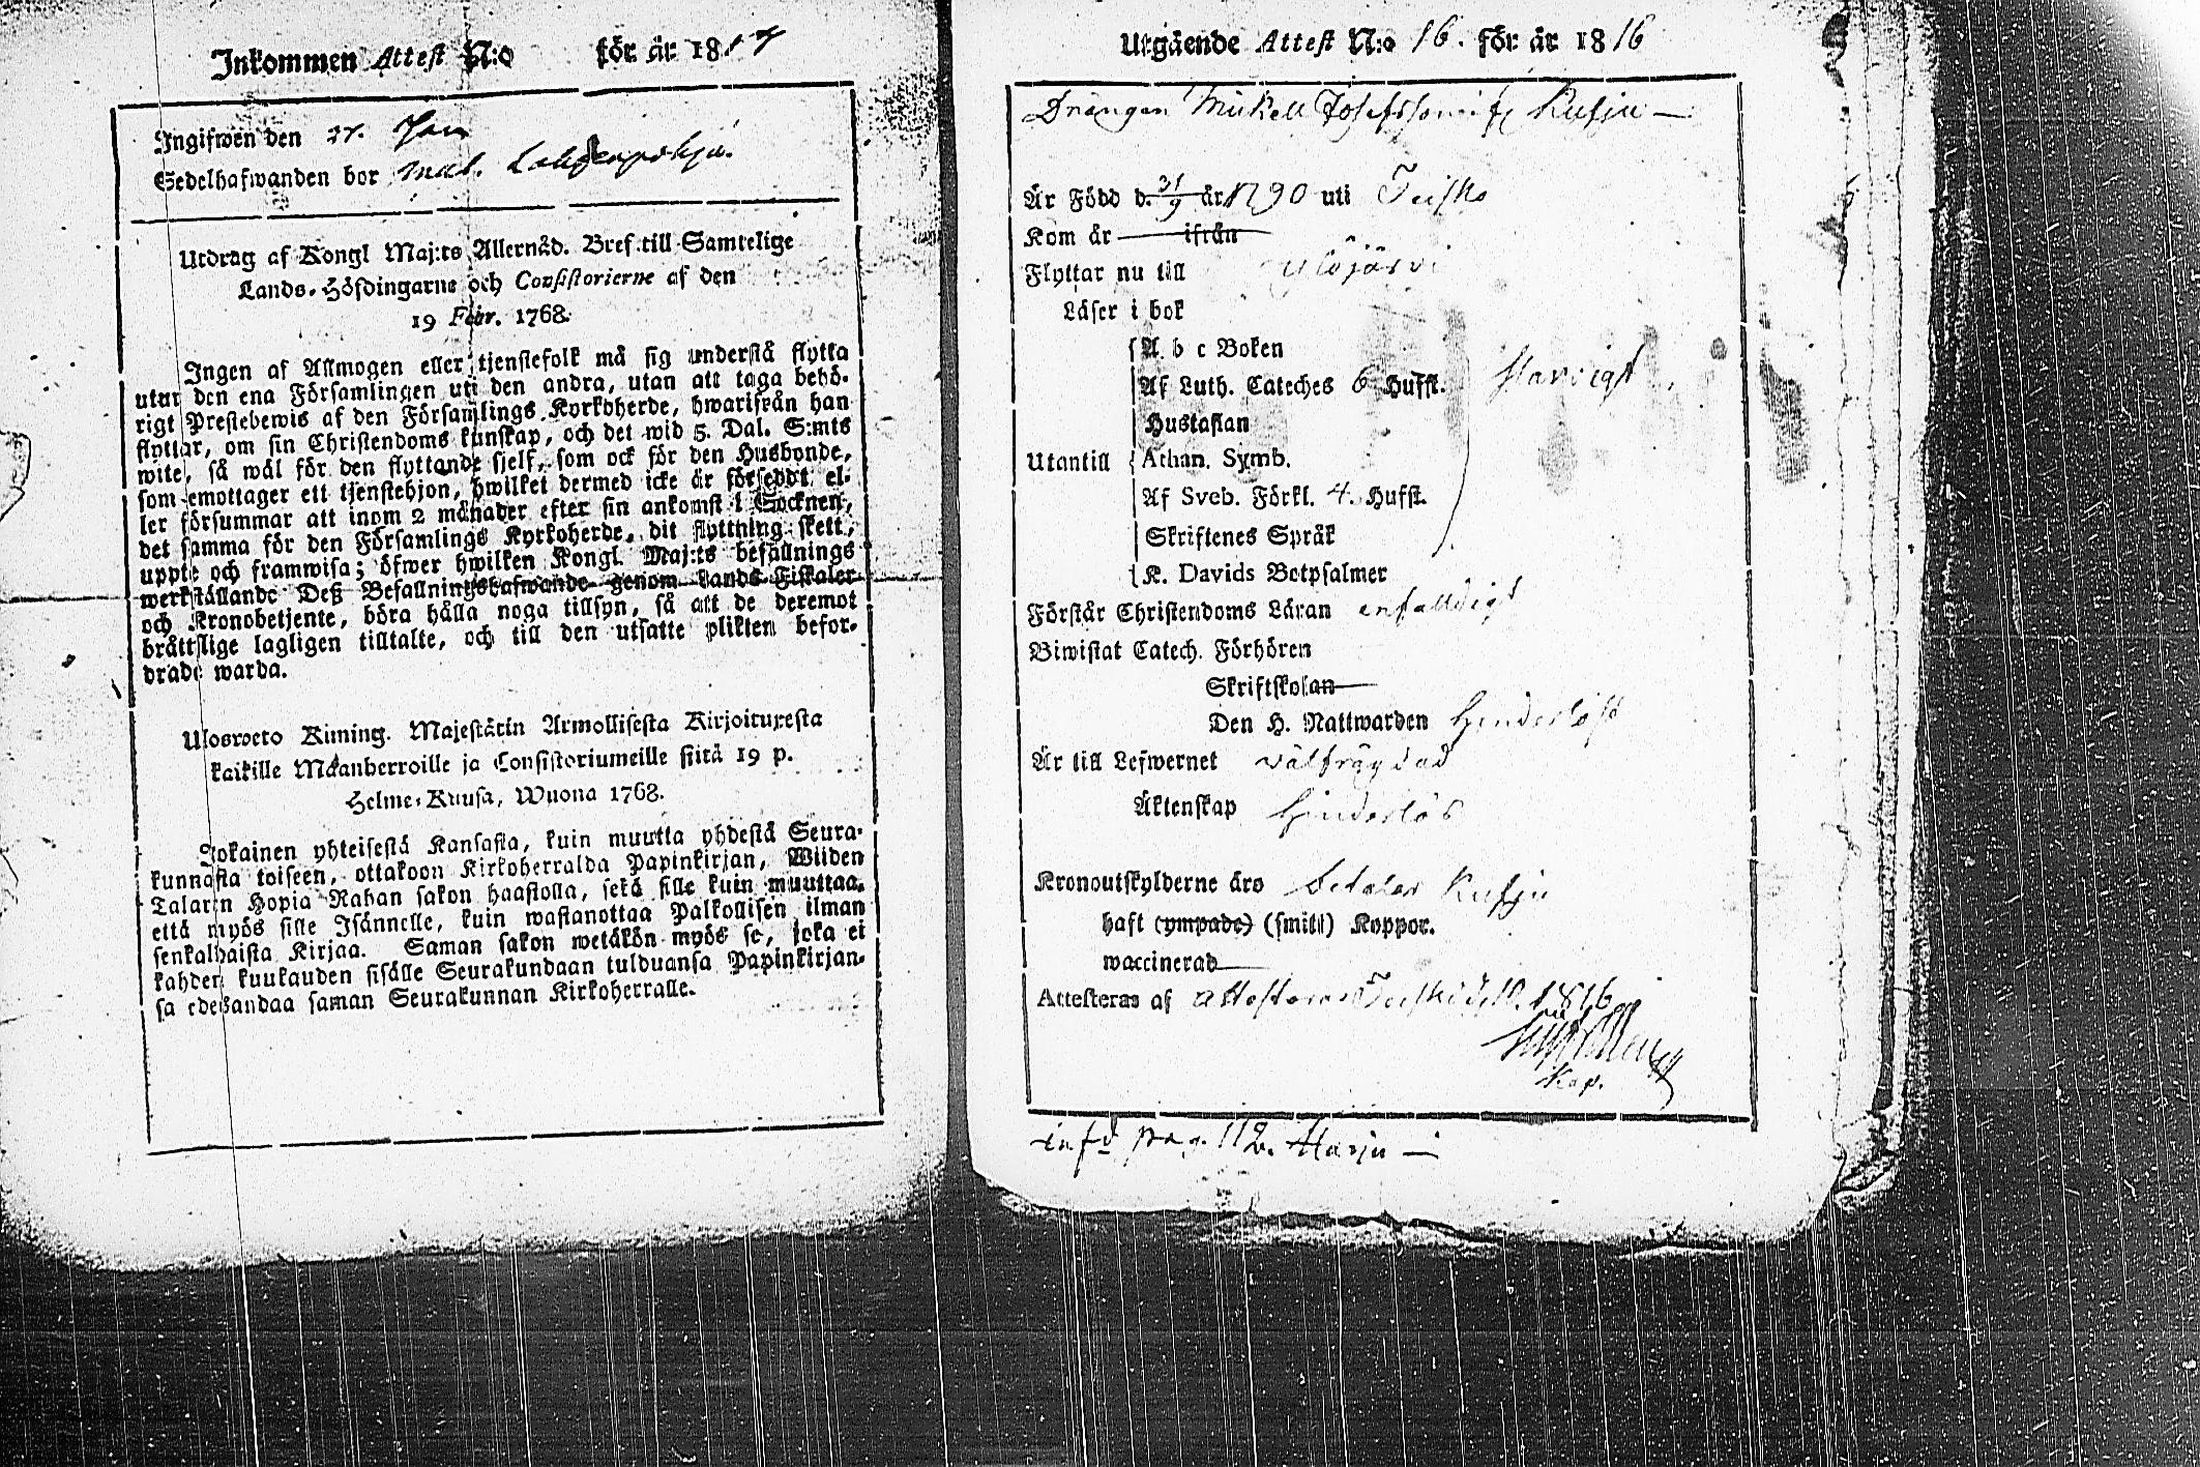 Inkommen Attest N:o för år 1817
Ingifwen den 27. Jan
Sedelhafwanden bor
Utdrag af Kongl Maj:ts Allernåd. Bref till Samtelige
Lands-Höfdingarne och Consistorierne af den
19 Febr. 1768.
Ingen af Allmogen eller tjenstefolk må sig understå flytta
utur den ena Församlingen uti den andra, utan att taga behö-
rigt Prestebewis af den Församlings Kyrkoherde, hwarifrån han
flyttar, om sin Christendoms kunskap, och det wid 5. Dal. S:mts
wite, så wäl för den flyttande sjelf, som ock för den Husbonde,
som emottager ett tjenstehjon, hwilket dermed icke är försedt el-
ler försummar att inom 2 månader efter sin ankomst i Socknen,
det samma för den Församlings Kyrkoherde, dit flyttning skett,
uppte och framwisa; öfwer hwilken Kongl Maj:ts befallnings
werkställande Deß Befallningshafwande genom Lands-Fiskaler
och Kronobetjente, böra hålla noga tillsyn, så att de deremot
bråttslige lagligen tilltalte, och till den utsatte plikten befor-
drade warda.
Ulosweto Kuning. Majestätin Armollisesta Kirjoituxesta
kaikille Maanherroille ja Consistoriumeille siitä 19 p.
Helme-Kuusa, Wuona 1768.
Jokainen yhteisestä Kansasta, kuin muutta yhdestä Seura-
kunnasta toiseen, ottakoon Kirkoherralda Papinkirjan, Wiiden
Talarin Hopia Rahan sakon haastolla, sekä sille kuin muuttaa,
että myös sille Isännelle, kuin wastanottaa Palkollisen ilman
senkaldaista Kirjaa. Saman sakon wetäkön myös se, joka ei
kahden kuukauden sisälle Seurakundaan tulduansa Papinkirjan-
sa edesandaa saman Seurakunnan Kirkoherralle.
Utgående Attest N:o 16. för år 1816
Drängen Mickell Josefsson if: Kusju
Är Född d. 21/9 år 1790 uti Teisko
Kom år ifrån
Flyttar nu till Ylöjärvi
Läser i bok
A b c Boken
Af Luth. Cateches 6 Hufst.
Hustaflan
Utantill Athan. Symb.
Af Sveb. Förkl. 4. Hufst.
Skriftenes Språk
K. Davids Botpsalmer
Förstår Christendoms Läran enfaldigt
Biwistat Catech. Förhören
Skriftskolan
Den H. Nattwarden
Är till Lefwernet välfrägdad
Äktenskap Hinderlös
Kronoutskylderne äro betalar Kusju
haft (ympade) (smitt) Koppor.
waccinerad
Attesteras af
Kap.
inf:d pag. 112. Harju